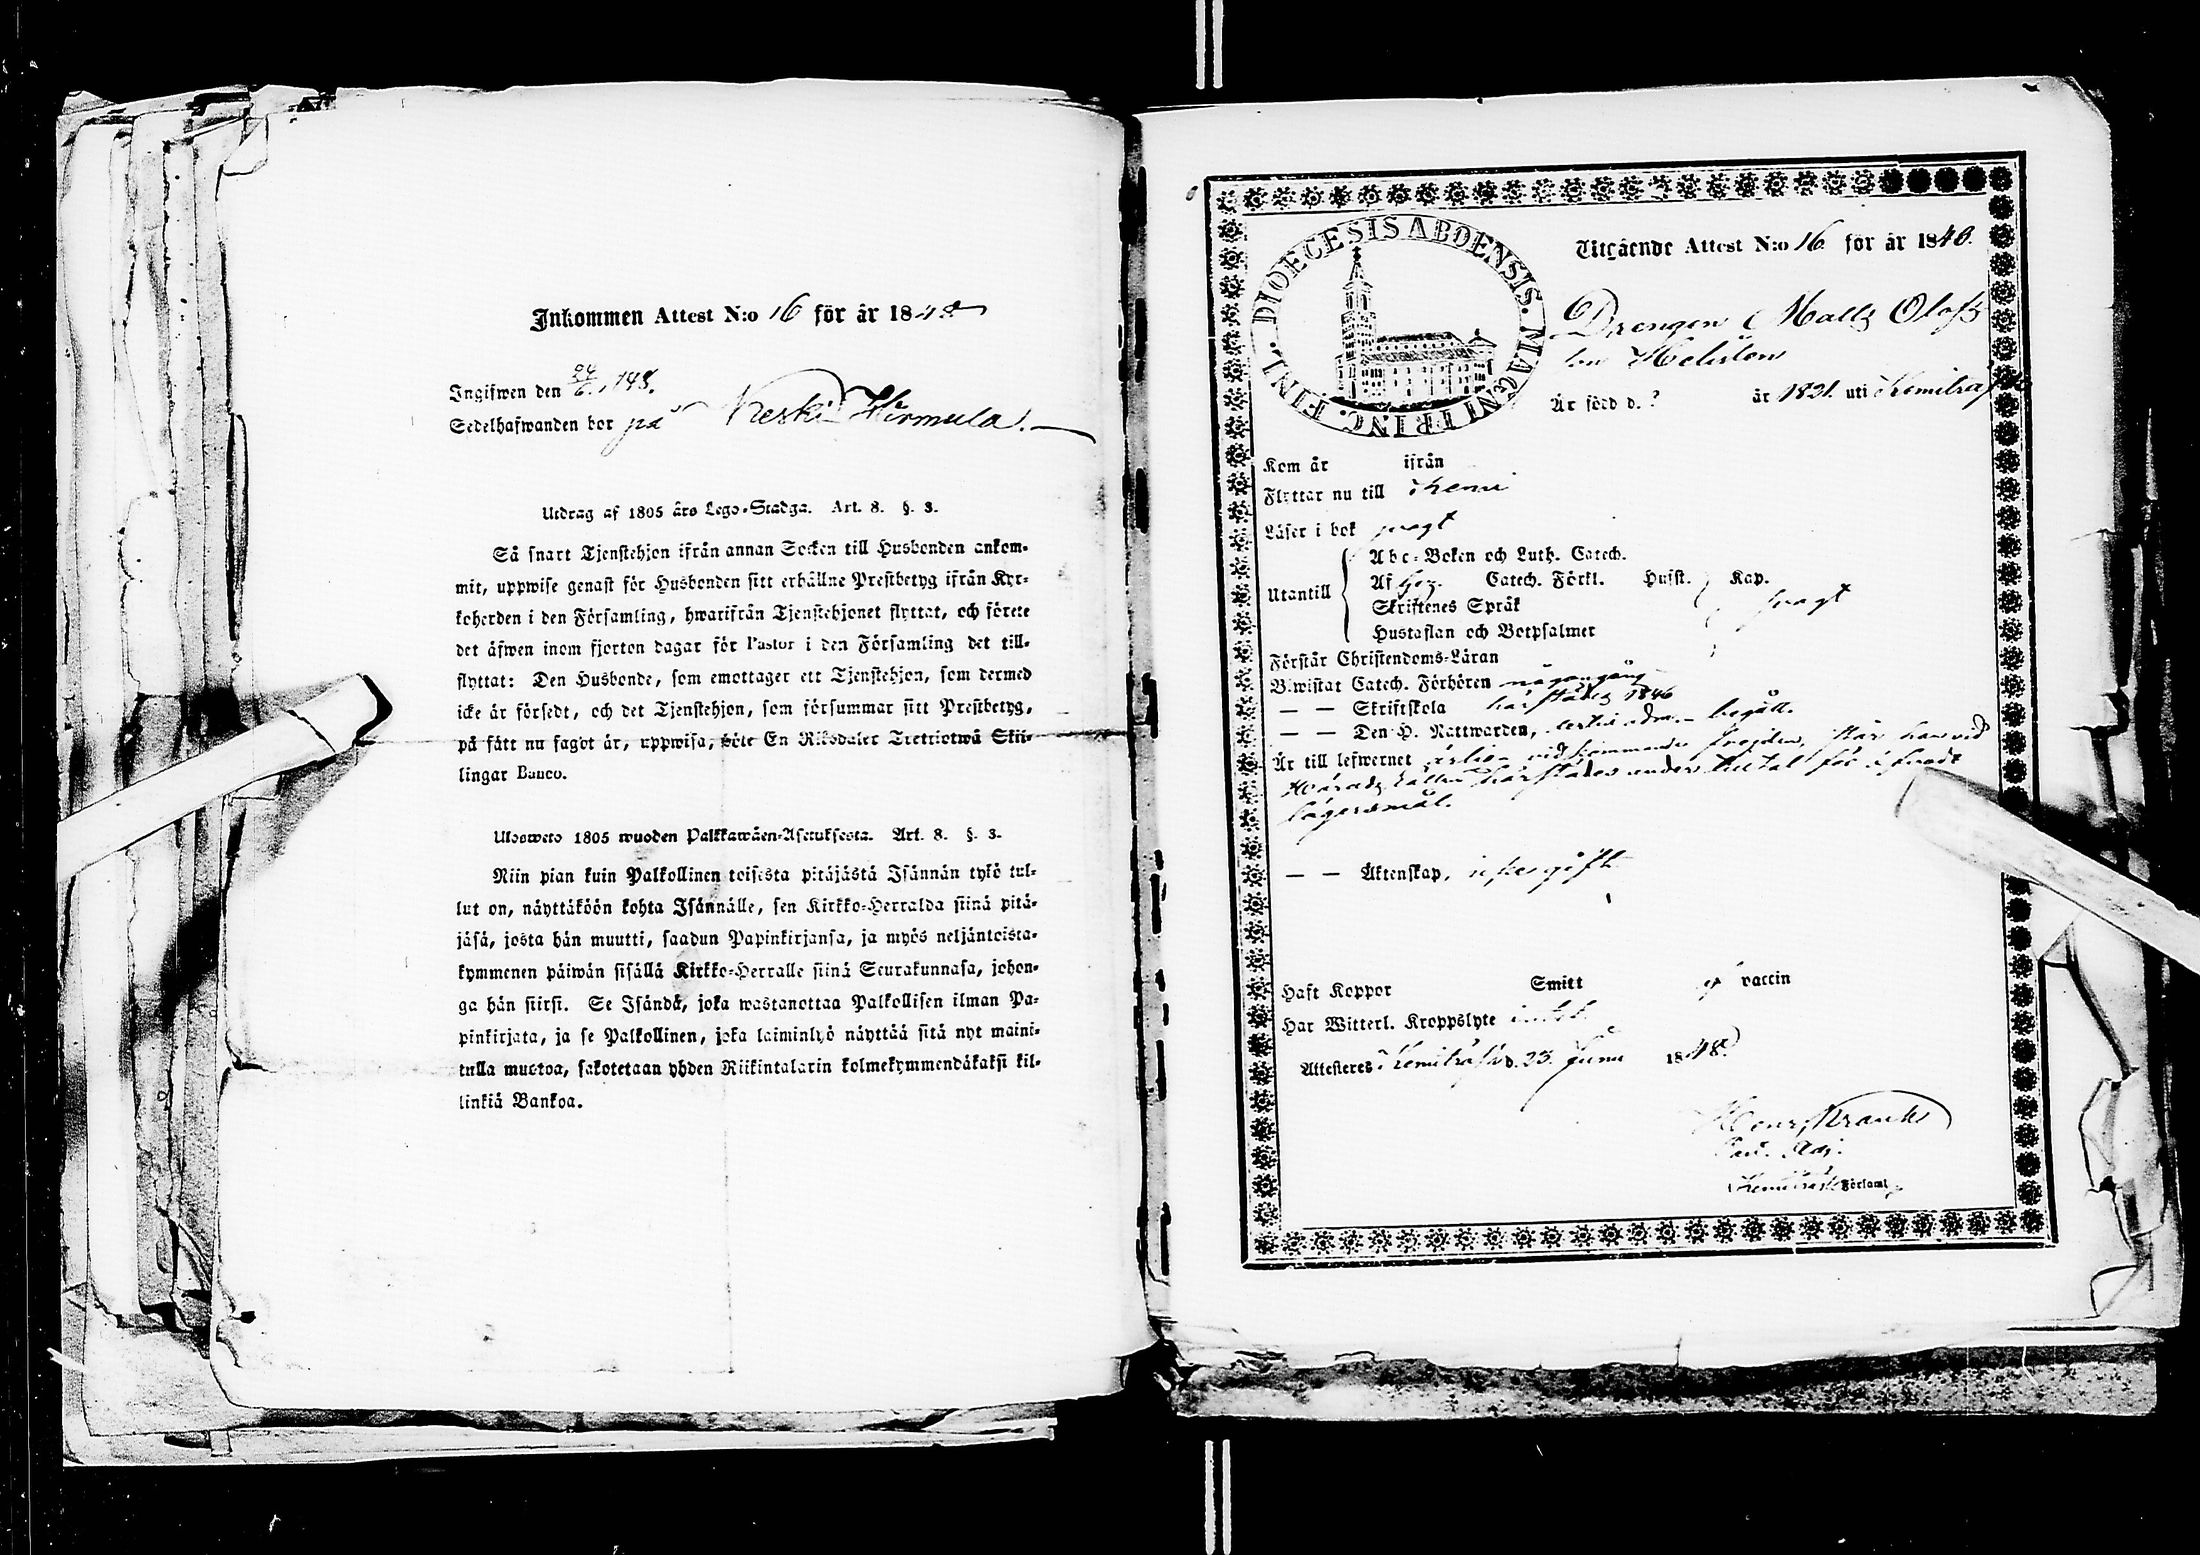 Inkommen Attest N:o 16 för år 1848
Ingifwen den 24/6 148.
Sedelhafwanden bor på Keski Hirmula.
Utdrag af 1805 års Lego-Stadga. Art. 8. §. 3.
Så snart Tjenstehjon ifrån annan Socken till Husbonden ankom-
mit, uppwise genast för Husbonden sitt erhållne Prestbetyg ifrån Kyr-
koherden i den Församling, hwarifrån Tjenstehjonet flyttat, och förete
det äfwen inom fjorton dagar för Pastor i den Församling det till-
flyttat: Den Husbonde, som emottager ett Tjenstehjon, som dermed
icke är försedt, och det Tjenstehjon, som försummar sitt Prestbetyg,
på sätt nu sagot är, uppwisa, böte En Riksdaler Tretriotwå Skil-
lingar Banco.
Ulosweto 1805 wuoden Palkkawäen-Asetuksesta. Art. 8. §. 3.
Niin pian kuin Palkollinen toisesta pitäjästä Isännän tykö tul-
lut on, näyttäköön kohta Isännälle, sen Kirkko-Herralda siinä pitä-
jäsä, josta hän muutti, saadun Papinkirjansa, ja myös neljäntoista-
kymmenen päiwän sisällä Kirkko-Herralle siinä Seurakunnasa, johon-
ga hän siirsi. Se Isändä, joka wastanottaa Palkollisen ilman Pa-
pinkirjata, ja se Palkollinen, joka laiminlyö näyttää sitä nyt maini-
tulla muotoa, sakotetaan yhden Riikintalarin kolmekymmendäkaksi kil-
linkiä Bankoa.
DIOECESIS ABOENSIS. MAGNI PRINC. FINL.
Utgående Attest N:o 16 för år 1848.
Drengen Matts Olofs
son
Är född d. ? år 1821. uti Kemiträsk
Kom år ifrån
Flyttar nu till Kemi
Läser i bok svagt
Abc-Boken och Luth. Catech.
Utantill Af Catech. Förkl. Hufst. Kap.
Skriftenes Språk svagt
Hustaflan och Botpsalmer
Förstår Christendoms-Läran
Biwistat Catech. Förhören någongång
— — Skriftskola härstädes 1846
— — Den H. Nattwarden, begått.
Är till lefwernet vidkommande frejden, står han vid
Härads Rätten härstädes under tilltal för
lägersmål.
— — Äktenskap,
Haft Koppor Smitt ej vaccin
Har Witterl. Kroppslyte intet
Attesteres Kemiträsk d. 23. Juni 1848
Henr. Kranck
Past. Adj.
Kemiträsk Förlaml